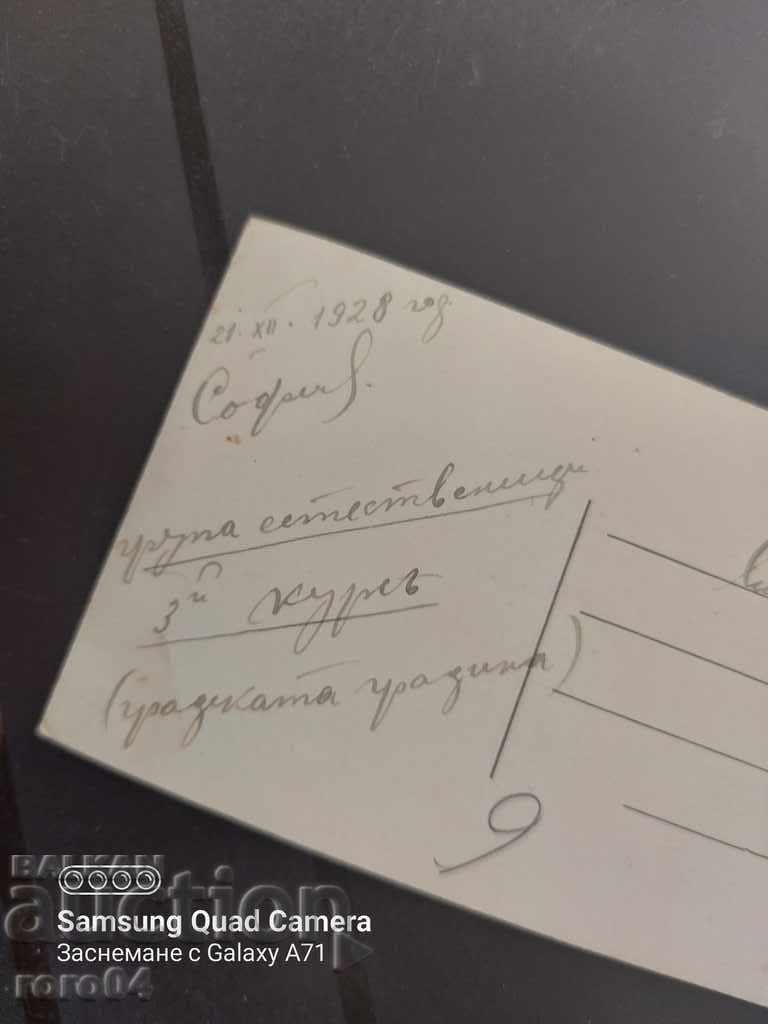 21. XII. 1928 год.
София.
група естественици
3й курсъ
(градската градина)
9
BALKAN
auction
Samsung Quad Camera
Заснемане с Galaxy A71
roro04